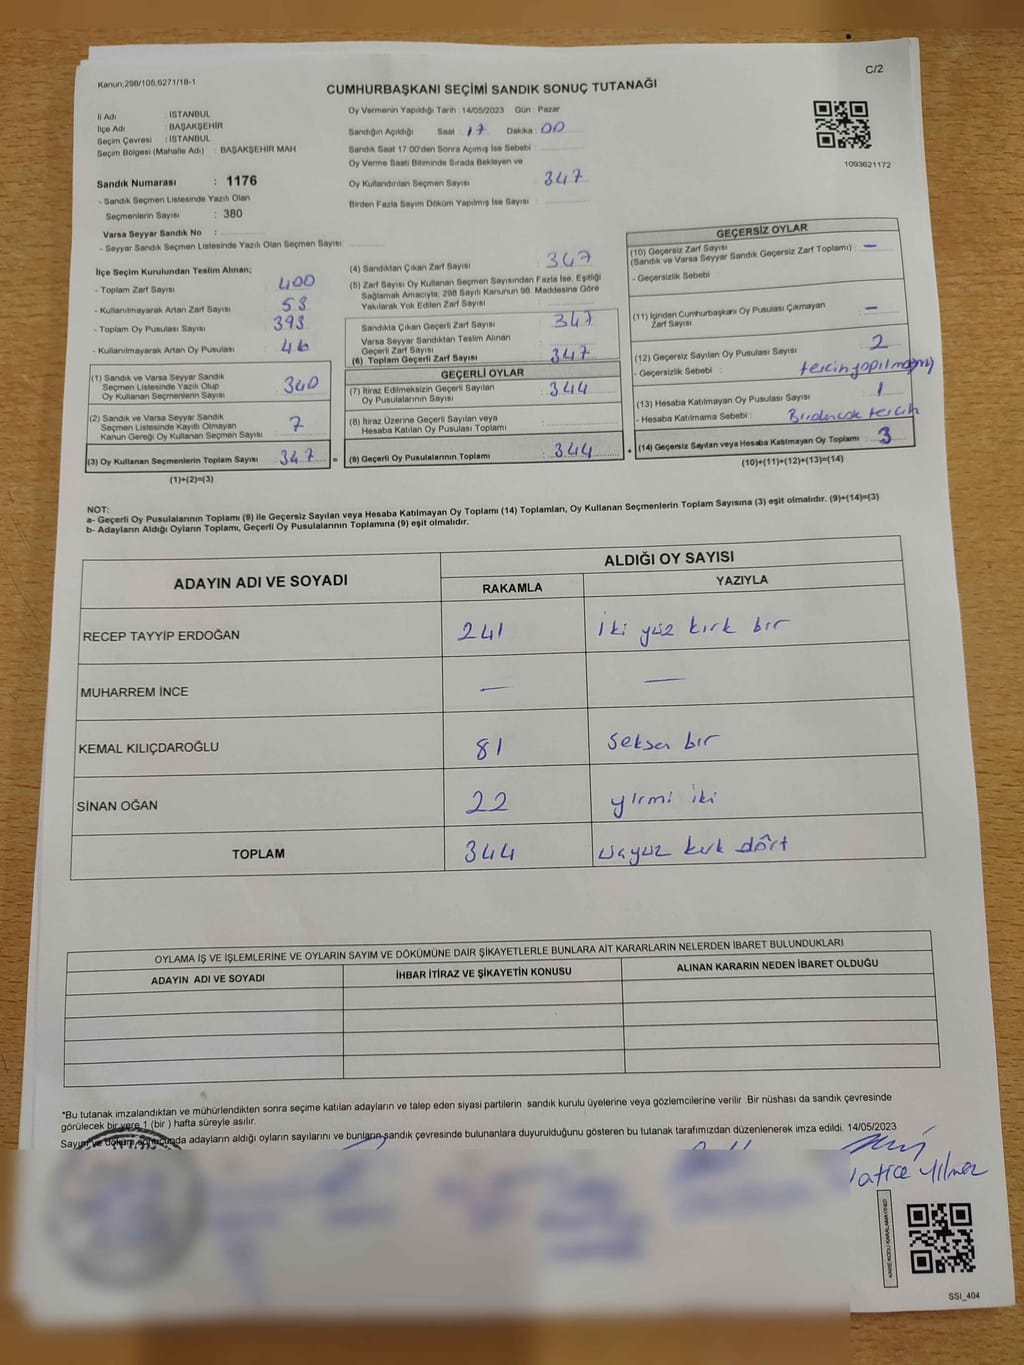 Kanun:298/105,6271/18-1
C/2
CUMHURBAŞKANI SEÇİMİ SANDIK SONUÇ TUTANAĞI
İl Adı : İSTANBUL
İlçe Adı : BAŞAKŞEHİR
Seçim Çevresi : İSTANBUL
Seçim Bölgesi (Mahalle Adı) : BAŞAKŞEHİR MAH
Sandık Numarası : 1176
- Sandık Seçmen Listesinde Yazılı Olan
Seçmenlerin Sayısı : 380
Varsa Seyyar Sandık No :
- Seyyar Sandık Seçmen Listesinde Yazılı Olan Seçmen Sayısı:
Oy Vermenin Yapıldığı Tarih :14/05/2023 Gün : Pazar
Sandığın Açıldığı Saat : 17 Dakika : 00
Sandık Saat 17:00'den Sonra Açımış İse Sebebi :
Oy Verme Saati Bitiminde Sırada Bekleyen ve
Oy Kullandırılan Seçmen Sayısı : 347
Birden Fazla Sayım Döküm Yapılmış İse Sayısı :
1093621172
İlçe Seçim Kurulundan Teslim Alınan;
- Toplam Zarf Sayısı : 400
- Kullanılmayarak Artan Zarf Sayısı : 53
- Toplam Oy Pusulası Sayısı : 393
- Kullanılmayarak Artan Oy Pusulası : 46
(1) Sandık ve Varsa Seyyar Sandık
Seçmen Listesinde Yazılı Olup
Oy Kullanan Seçmenlerin Sayısı : 340
(2) Sandık ve Varsa Seyyar Sandık
Seçmen Listesinde Kayıtlı Olmayan
Kanun Gereği Oy Kullanan Seçmen Sayısı : 7
(3) Oy Kullanan Seçmenlerin Toplam Sayısı : 347 =
(1)+(2)=(3)
(4) Sandıktan Çıkan Zarf Sayısı : 347
(5) Zarf Sayısı Oy Kullanan Seçmen Sayısından Fazla İse, Eşitliği
Sağlamak Amacıyla, 298 Sayılı Kanunun 98. Maddesine Göre
Yakılarak Yok Edilen Zarf Sayısı :
Sandıkta Çıkan Geçerli Zarf Sayısı : 347
Varsa Seyyar Sandıktan Teslim Alınan
Geçerli Zarf Sayısı :
(6) Toplam Geçerli Zarf Sayısı : 347
GEÇERLİ OYLAR
(7) İtiraz Edilmeksizin Geçerli Sayılan
Oy Pusulalarının Sayısı : 344
(8) İtiraz Üzerine Geçerli Sayılan veya
Hesaba Katılan Oy Pusulası Toplamı :
(9) Geçerli Oy Pusulalarının Toplamı : 344 +
GEÇERSİZ OYLAR
(10) Geçersiz Zarf Sayısı
(Sandık ve Varsa Seyyar Sandık Geçersiz Zarf Toplamı) : —
- Geçersizlik Sebebi :
(11) İçinden Cumhurbaşkanı Oy Pusulası Çıkmayan
Zarf Sayısı : —
(12) Geçersiz Sayılan Oy Pusulası Sayısı : 2
- Geçersizlik Sebebi :
(13) Hesaba Katılmayan Oy Pusulası Sayısı : 1
- Hesaba Katılmama Sebebi : tercih
(14) Geçersiz Sayılan veya Hesaba Katılmayan Oy Toplamı : 3
(10)+(11)+(12)+(13)=(14)
NOT:
a- Geçerli Oy Pusulalarının Toplamı (9) ile Geçersiz Sayılan veya Hesaba Katılmayan Oy Toplamı (14) Toplamları, Oy Kullanan Seçmenlerin Toplam Sayısına (3) eşit olmalıdır. (9)+(14)=(3)
b- Adayların Aldığı Oyların Toplamı, Geçerli Oy Pusulalarının Toplamına (9) eşit olmalıdır.
ADAYIN ADI VE SOYADI
ALDIĞI OY SAYISI
RAKAMLA YAZIYLA
RECEP TAYYİP ERDOĞAN 241 iki yüz kırk bir
MUHARREM İNCE — —
KEMAL KILIÇDAROĞLU 81 seksen bir
SİNAN OĞAN 22 yirmi iki
TOPLAM 344 üçyüz kırk dört
OYLAMA İŞ VE İŞLEMLERİNE VE OYLARIN SAYIM VE DÖKÜMÜNE DAİR ŞİKAYETLERLE BUNLARA AİT KARARLARIN NELERDEN İBARET BULUNDUKLARI
ADAYIN ADI VE SOYADI İHBAR İTİRAZ VE ŞİKAYETİN KONUSU ALINAN KARARIN NEDEN İBARET OLDUĞU
*Bu tutanak imzalandıktan ve mühürlendikten sonra seçime katılan adayların ve talep eden siyasi partilerin sandık kurulu üyelerine veya gözlemcilerine verilir .Bir nüshası da sandık çevresinde
görülecek bir yere 1 (bir ) hafta süreyle asılır.
Sayım ve döküm sonucunda adayların aldığı oyların sayılarını ve bunların sandık çevresinde bulunanlara duyurulduğunu gösteren bu tutanak tarafımızdan düzenlenerek imza edildi. 14/05/2023
Yılmaz
KARE KODU KARALAMAYINIZ!
SSI_404